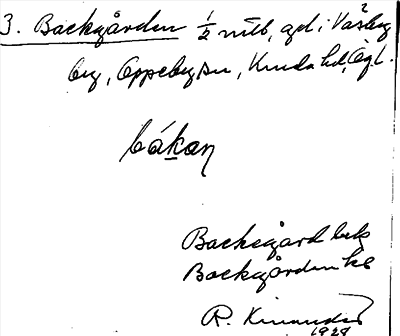 3. Backgården 1/2 mtl, gd i Väsby
by, Oppeby sn, Kinda hd, Ögl.
bákan
Backegård bek
Backgården ke
R. Kinander
1928